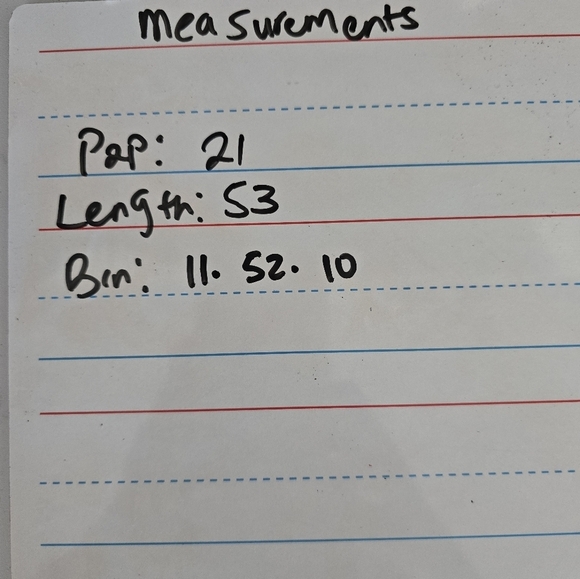 measurements
Pap: 21
Length: 53
Bin: 11. 52. 10